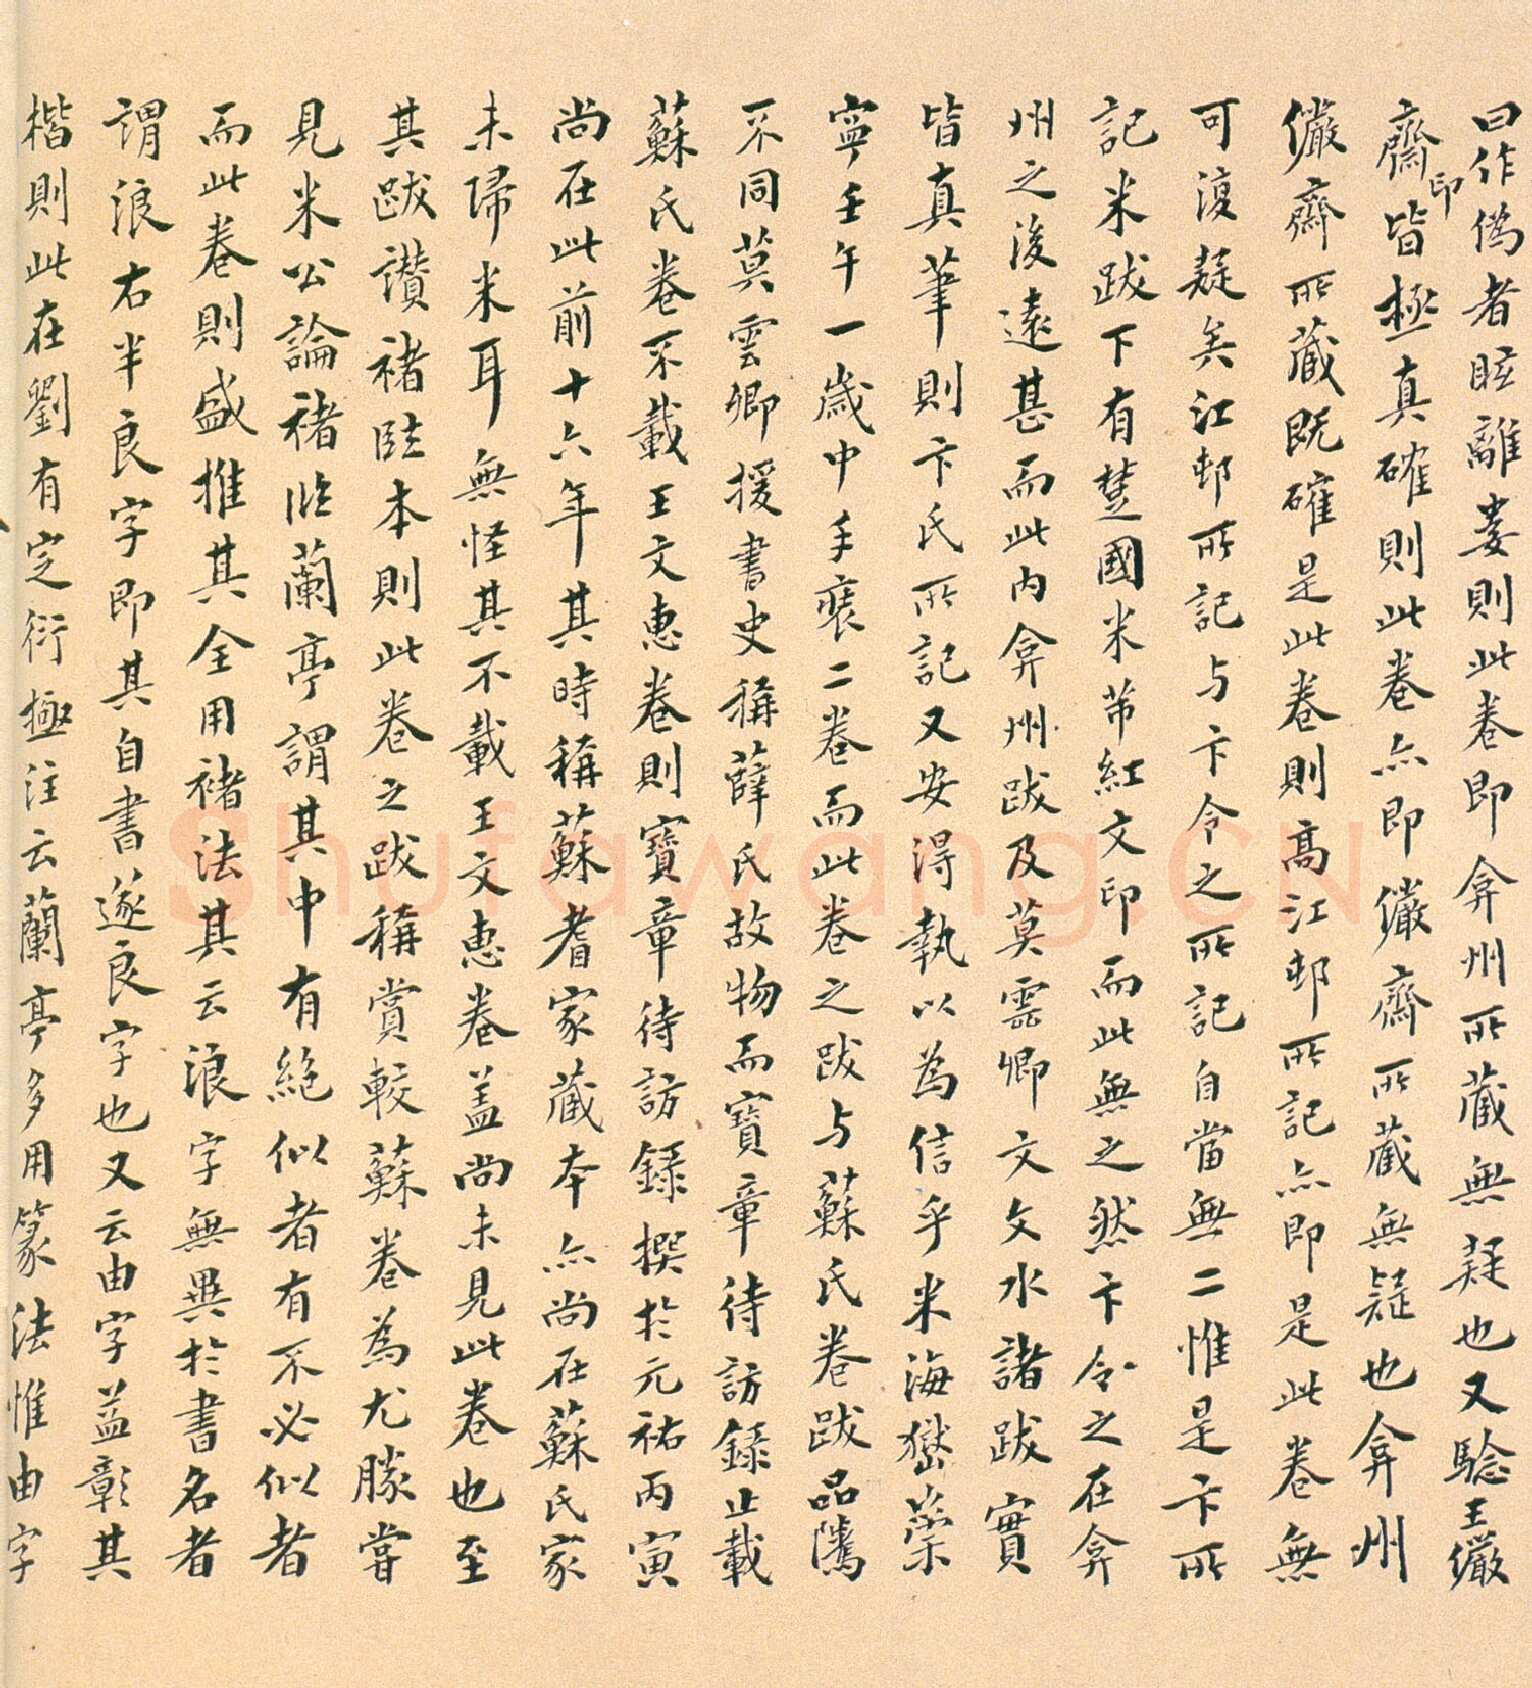 曰作偽者眩離婁則此卷即弇州所藏無疑也又驗王儼
齋印皆極真確則此卷亦即儼齋所藏無疑也弇州
儼齋所藏既確是此卷則高江邨所記亦即是此卷無
可復疑矣江邨所記与卞令之所記自當無二惟是卞所
記米跋下有楚國米芾紅文印而此無之然卞令之在弇
州之後遠甚而此内弇州跋及莫雲卿文文水諸跋實
皆真筆則卞氏所記又安得執以為信乎米海嶽崇
寧壬午一歲中手裝二卷而此卷之跋与蘇氏卷跋品隲
不同莫雲卿援書史稱薛氏故物而寶章待訪録止載
蘇氏卷不載王文惠卷則寶章待訪録撰於元祐丙寅
尚在此前十六年其時稱蘇耆家藏本亦尚在蘇氏家
未歸米耳無怪其不載王文惠卷盖尚未見此卷也至
其跋讚褚臨本則此卷之跋稱賞較蘇卷為尤勝嘗
見米公論褚臨蘭亭謂其中有絶似者有不必似者
而此卷則盛推其全用褚法其云浪字無異於書名者
謂浪右半良字即其自書遂良字也又云由字益彰其
楷則此在劉有定衍極注云蘭亭多用篆法惟由字
Shufawang.CN